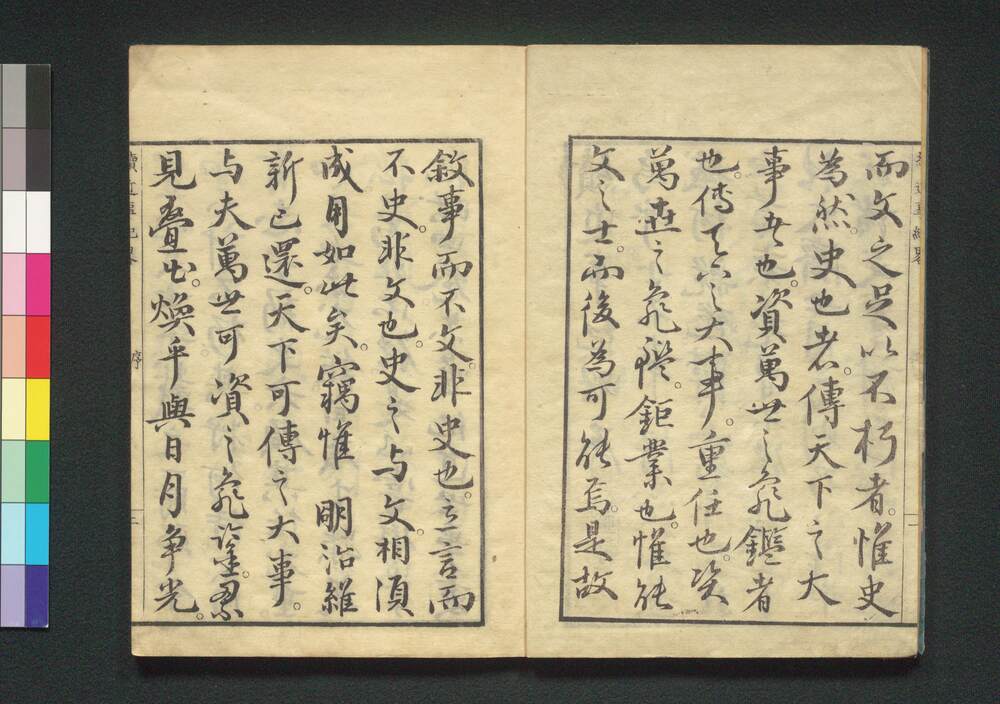 而文之足以不朽者。惟史
為然。史也者。傳天下之大
事者也。資萬世之龜鑑者
也。傳天下之大事。重任也。資
萬世之龜鑑。鉅業也。惟能
文之士。而後為可能焉。是故
敘事而不文。非史也。立言而
不史。非文也。史之与文。相須
成用如此矣。竊惟 明治維
新已還。天下可傳之大事。
与夫萬世可資之龜鑑。累
見疊出。煥乎與日月争光。
序